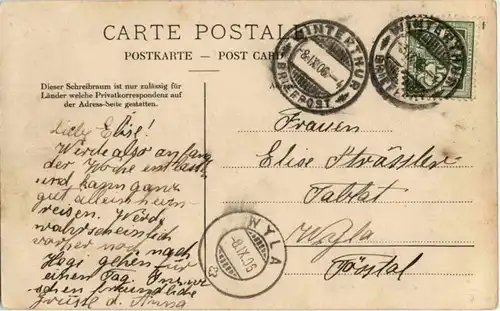 CARTE POSTALE
POSTKARTE — POST CARD
Dieser Schreibraum ist nur zulässig für
Länder welche Privatkorrespondenz auf
der Adress-Seite gestatten.
WINTERTHUR
-8.IX.06
BRIEFPOST
WINTERTHUR
Liebe Elise!
Werde also anfangs
der Woche entlassen
und kann ganz
gut allein heim
reisen. Werde
wahrscheinlich
vorher noch nach
Hagi gehen für
einen Tag.
freundliche
Grüsse d. Anna
Frauen
Elise Strässler
Tablat
Wyla
Tösstal
WYLA
-8.IX.06